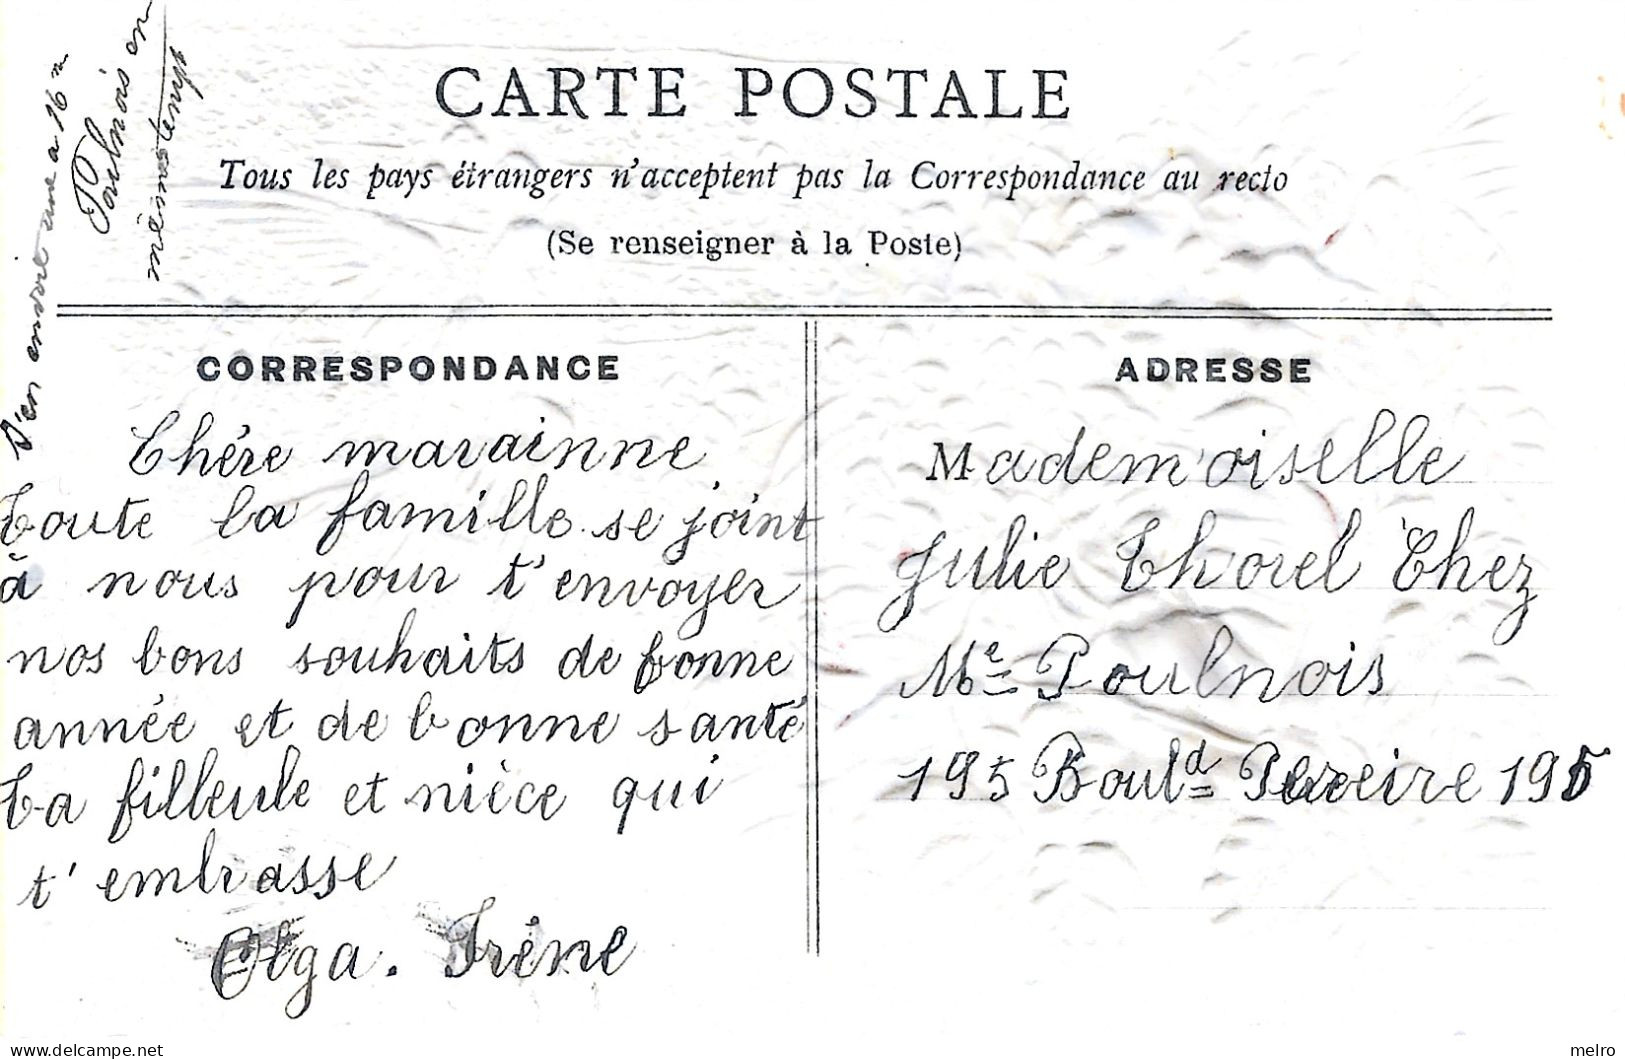 CARTE POSTALE
Tous les pays étrangers n'acceptent pas la Correspondance au recto
(Se renseigner à la Poste)
J'en envoie une a 16 n
Poulnois en
même temps
CORRESPONDANCE
Chére marainne
Toute la famille se joint
à nous pour t'envoyer
nos bons souhaits de bonne
année et de bonne santé
ta filleule et nièce qui
t'embrasse
Olga. Irène
ADRESSE
Mademoiselle
Julie Thorel Chez
Me Poulnois
195 Bould Pereire 195
© delcampe.net
melro